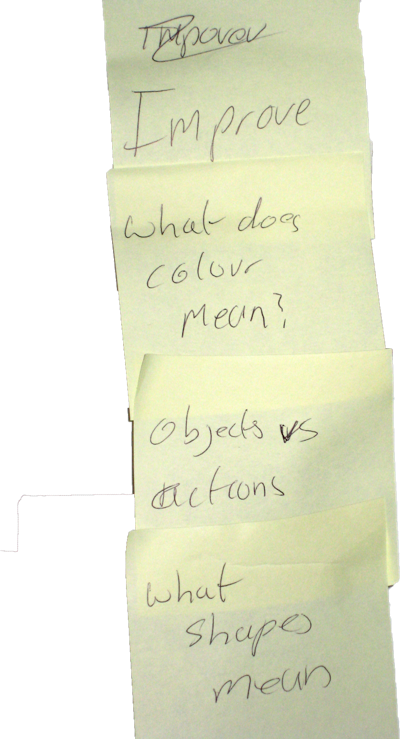 Improve
what does
colour
mean?
Objects vs
actions
what
shapes
mean